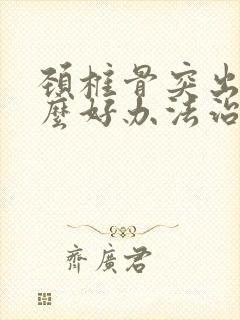 頸椎骨突出
麼好办法治
齊廣君